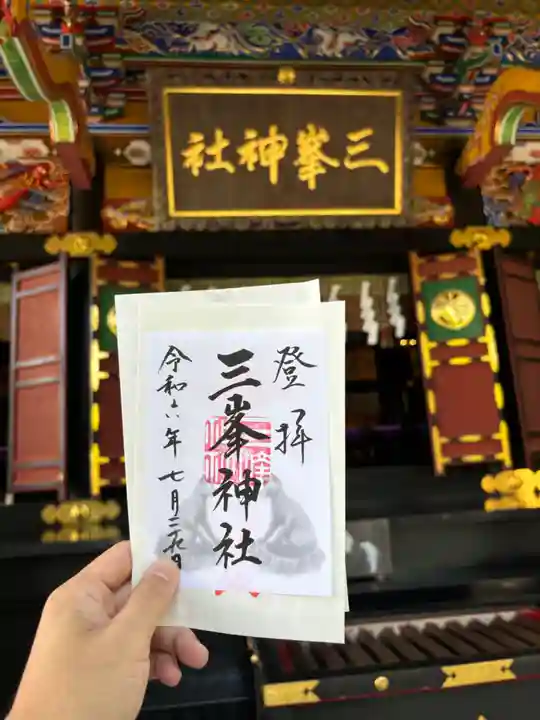 三峯神社
登拝
三峯神社
令和六年七月二十九日